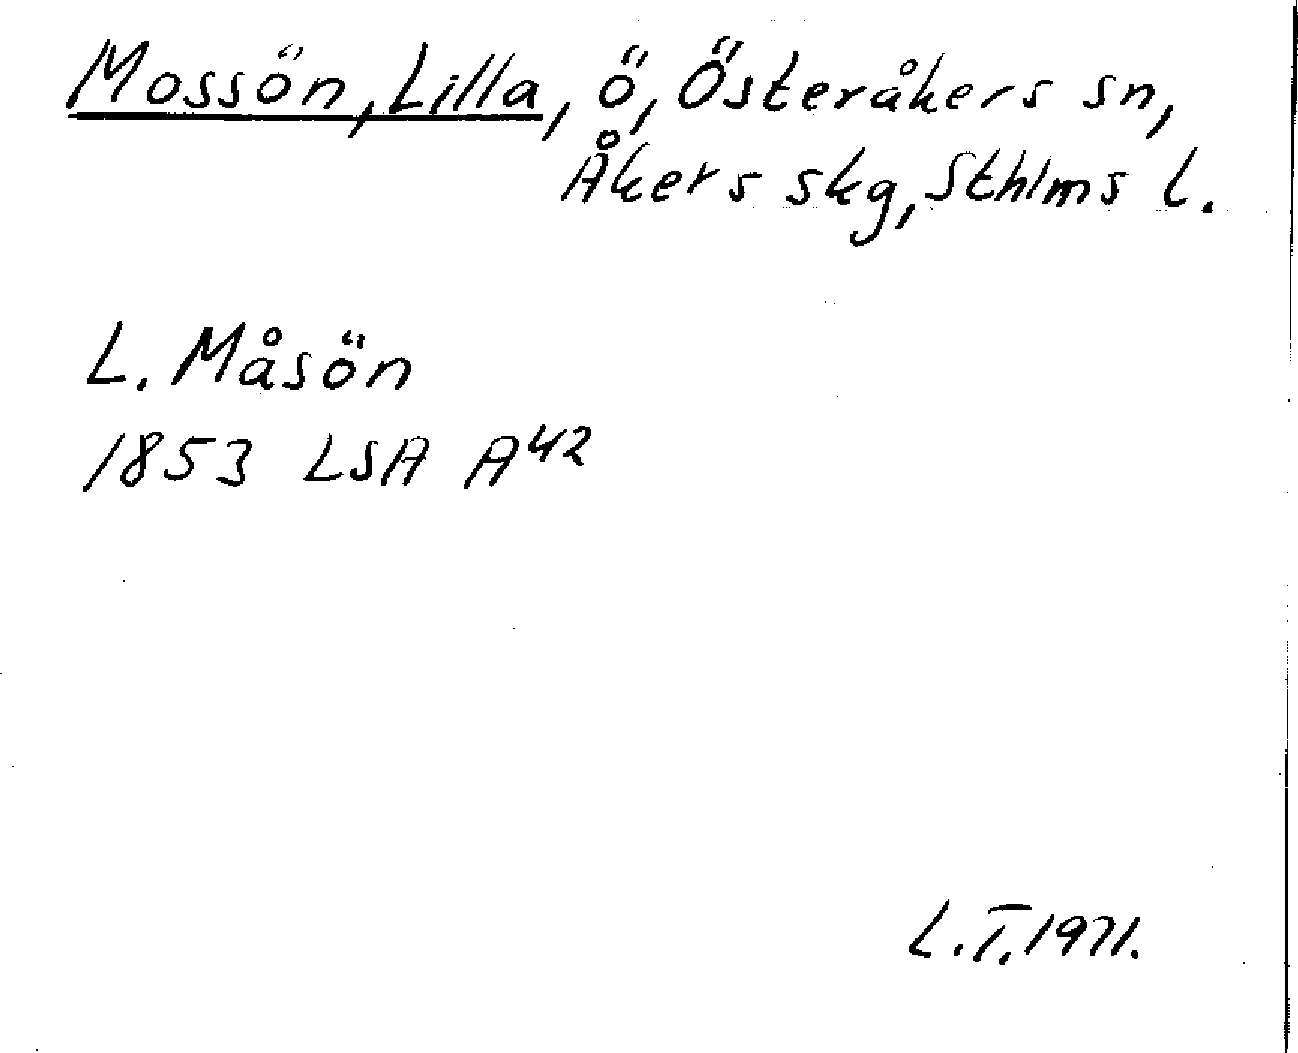 Mossön, Lilla, ö, Österåkers sn,
Åkers skg, Sthlms l.
L. Måsön
1853 LSA A42
L.T. 1971.